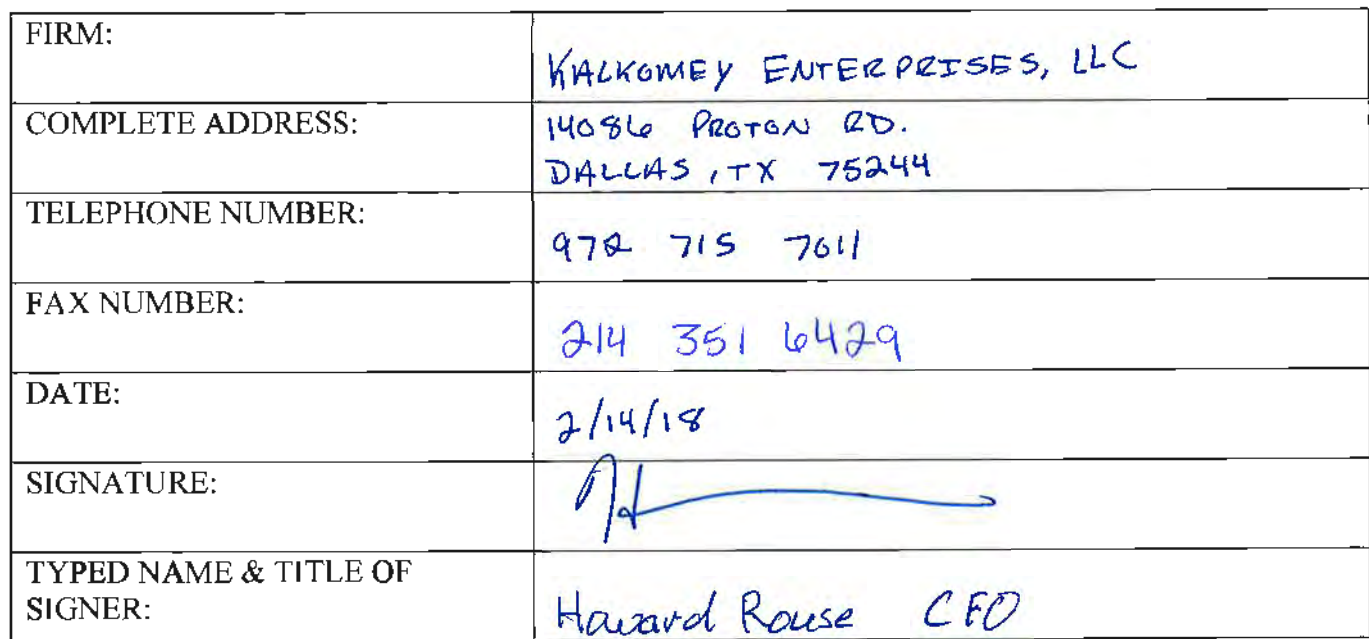 FIRM:
KALKOMEY ENTERPRISES, LLC
COMPLETE ADDRESS:
14086 PROTON RD.
DALLAS, TX 75244
TELEPHONE NUMBER:
972 715 7011
FAX NUMBER:
214 351 6429
DATE:
2/14/18
SIGNATURE:
TYPED NAME & TITLE OF
SIGNER:
Howard Rouse CFO